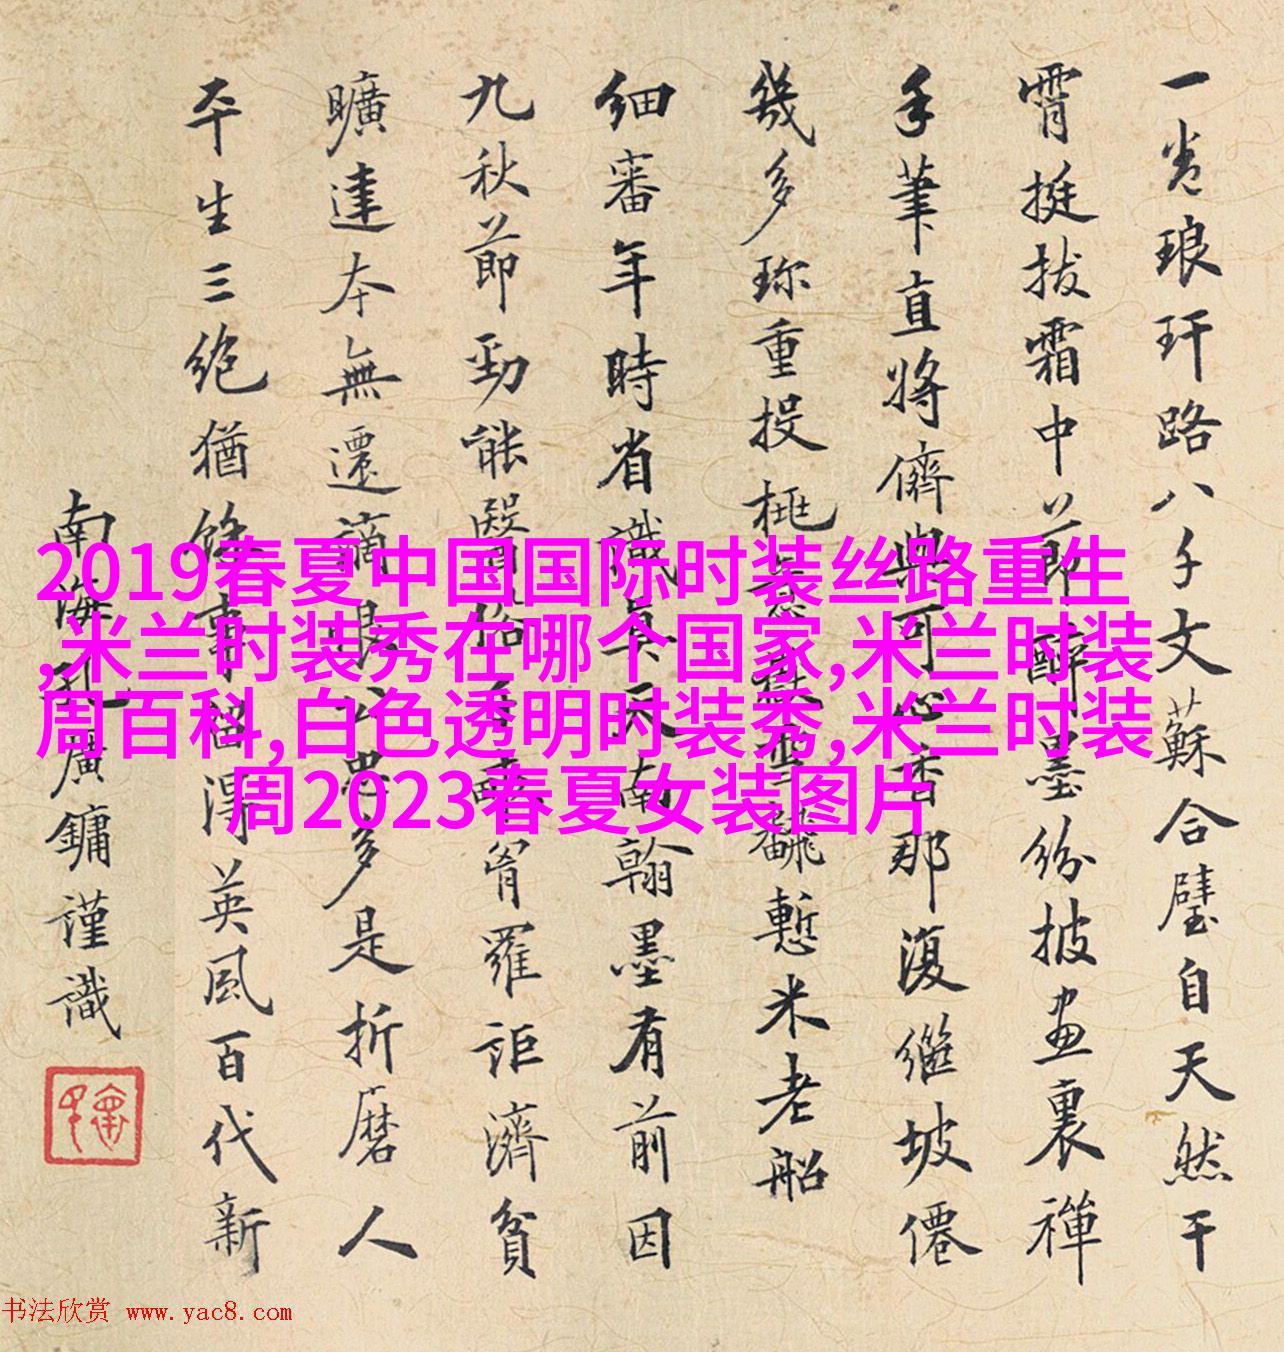 一卷琅玕路八千文蘇合璧自天然干
霄挺拔霜中節醉墨紛披畫裏禪
手筆直將儕與可心香那復繼坡僊
幾多珍重投桃意暫米老船
細審年時省識真天南翰墨有前因
九秋節勁能醫俗胷羅詎濟貧
曠達本無遷謫恨公忠多是折磨人
平生三絕猶餘事留得英風百代新
南海孔廣鏞謹識
2019春夏中国国际时装丝路重生
,米兰时装秀在哪个国家,米兰时装
周百科,白色透明时装秀,米兰时装
周2023春夏女装图片
书法欣赏 www.yac8.com